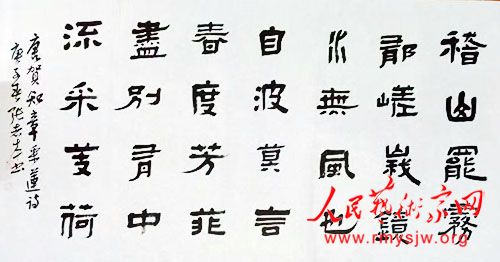 稽山罷霧
郁嵯峩鏡
水無風也
自波莫言
春度芳菲
盡別有中
流采芰荷
唐賀知章采蓮詩
庚子春张志书
人民藝術家网
www.rmysjw.org